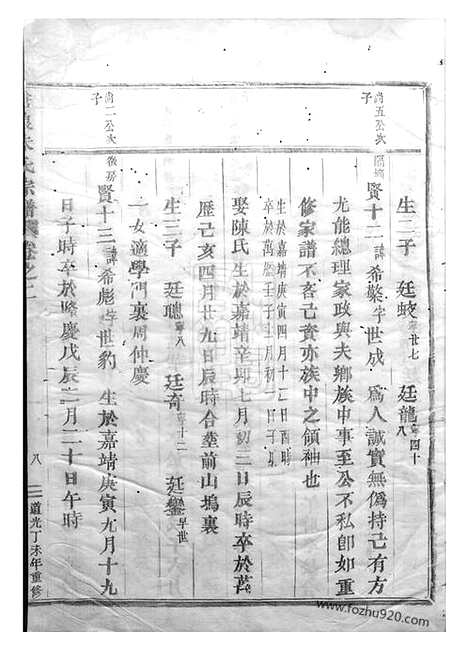 生二子 廷蛟寧世七 廷龍寧四十八
尚五公次子
賢十二諱希繁字世成 為人誠實無僞持己有方
尤能總理家政與夫鄉族中事至公不私卽如重
修家譜不吝己資亦族中之領袖也
生於嘉靖庚寅四月十二日酉時
卒於萬曆壬子十一月初一日子時
娶陳氏生於嘉靖辛卯七月初二日辰時卒於萬
歷己亥四月廿九日辰時合塟前山塢裏
生三子 廷聰寧八 廷奇寧十二 廷鑾早世
一女適學門裏周仲慶
尚二公次子
賢十三諱希彪字世豹 生於嘉靖庚寅九月十九
日子時卒於隆慶戊辰二月二十日午時
氏宗譜 卷之二
八
道光丁未年重修
www.fozhu920.com